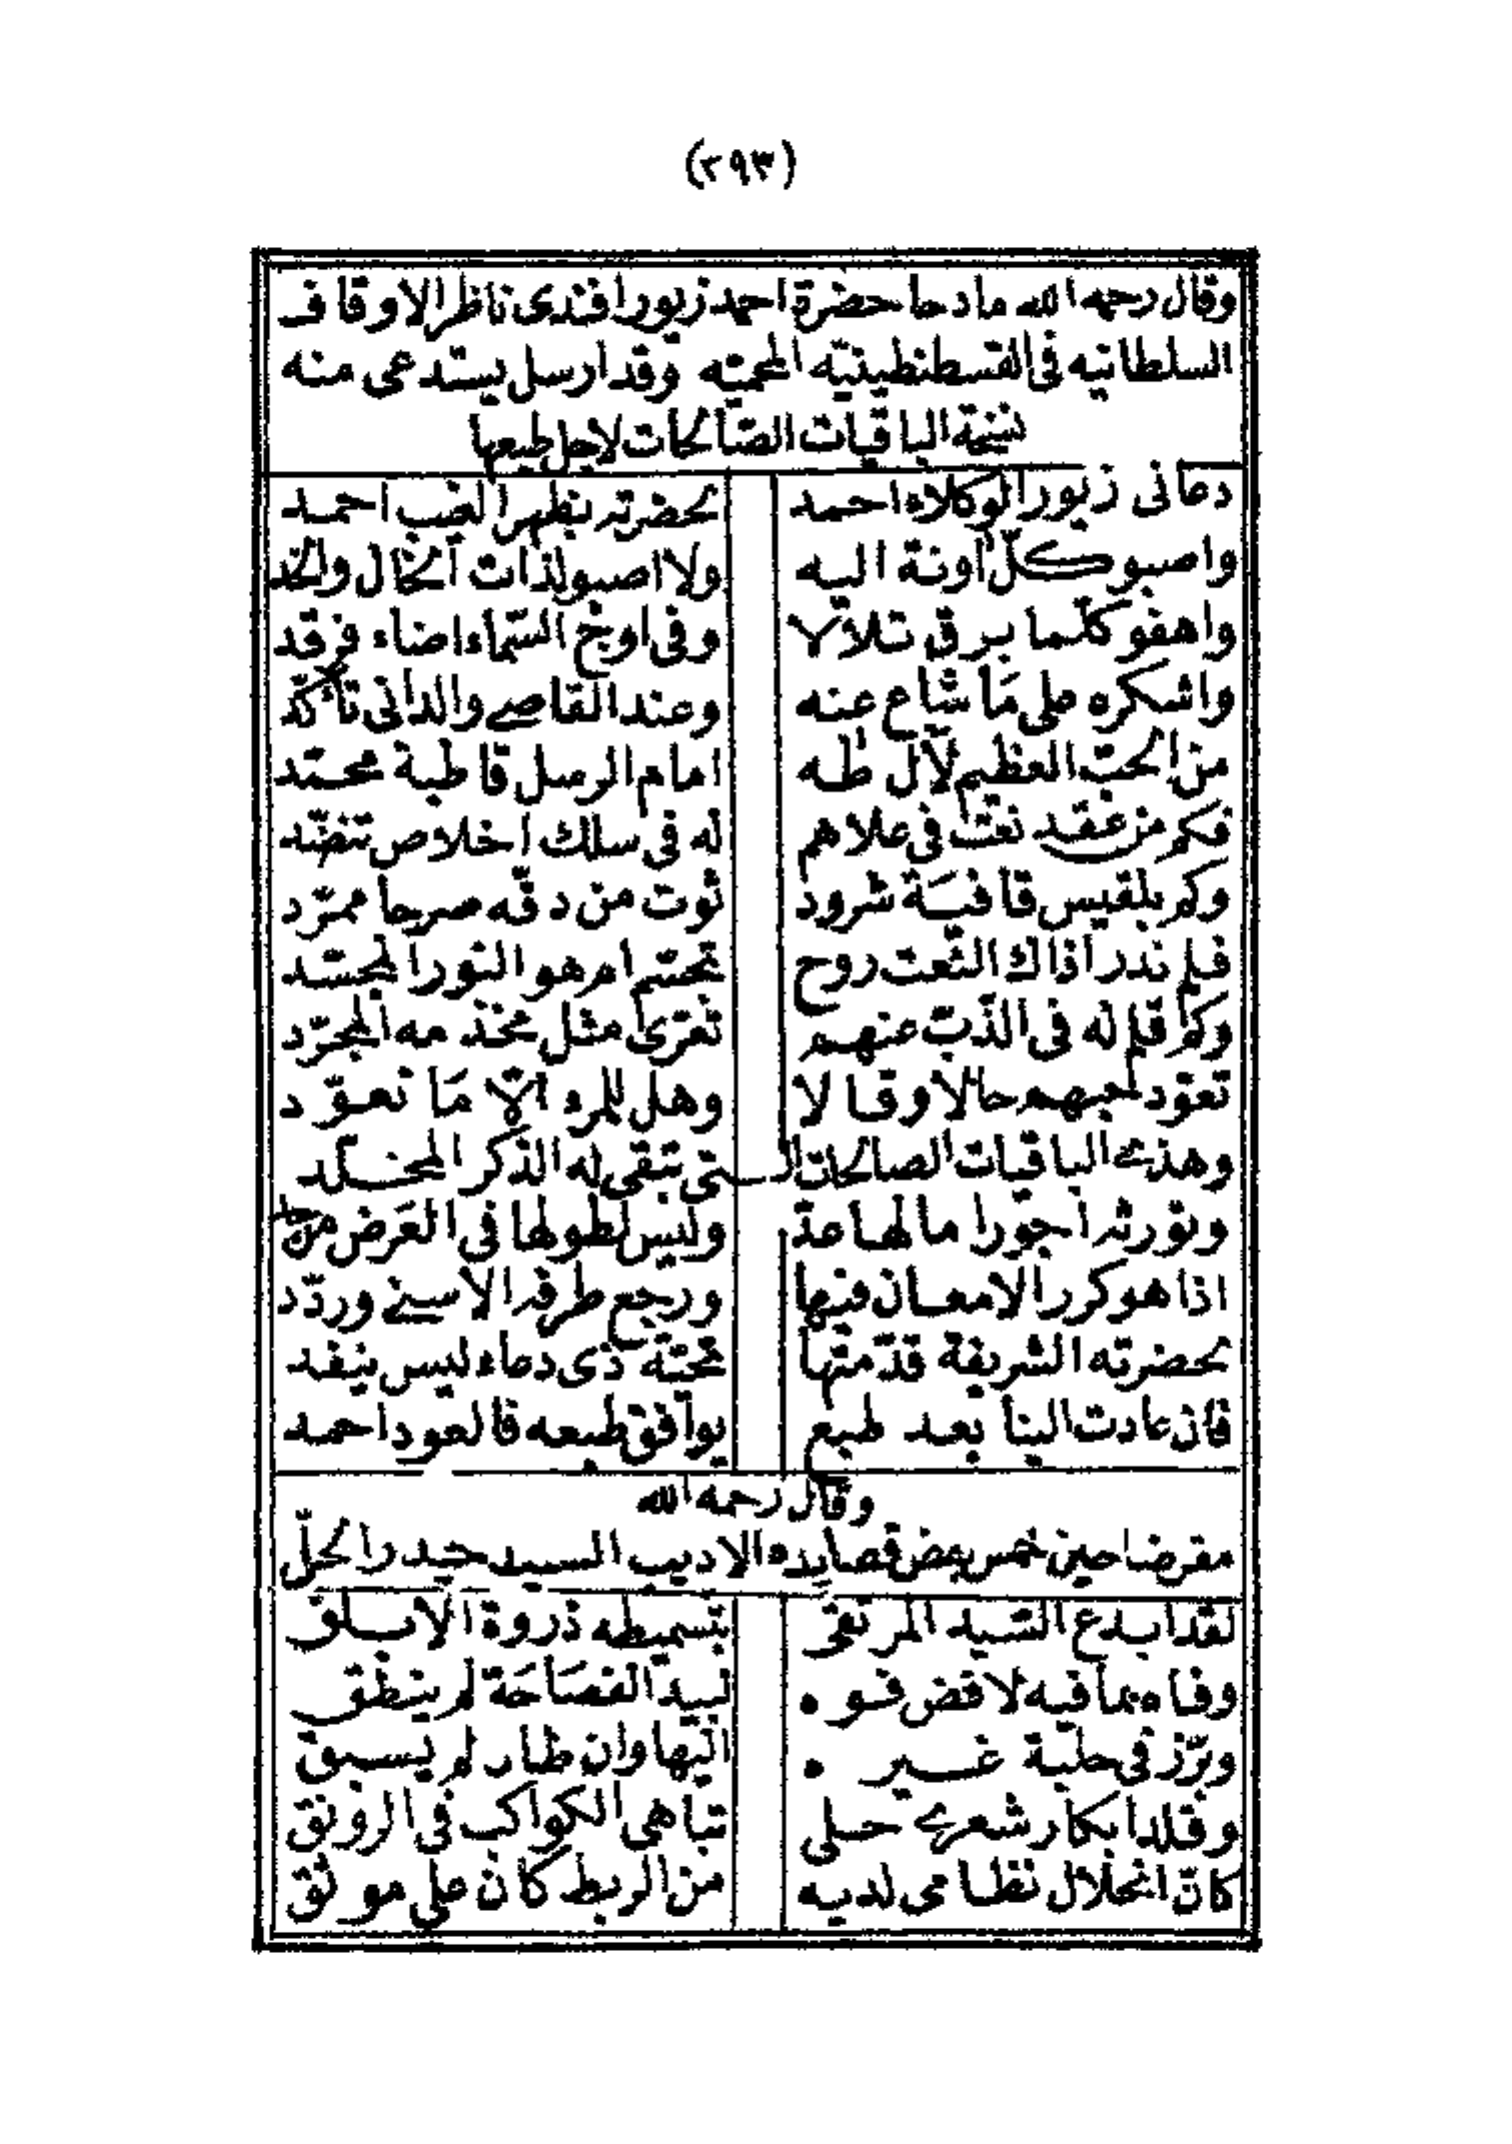 (٢٩٣)
وقال رحمه الله مادحا حضرة احمد زيور افندى ناظر الاوقاف
السلطانيه فى القسطنطينيّه المحميّه وقد ارسل يستدعى منه
نسخة الباقيات الصّالحات لاجل طبعها
دعانى زيور الوكلاء احمد بحضرته بظهر الغيب احمد
واصبو كلّ آونة اليه ولا اصبو لذات الخال والخد
واهفو كلّما برق تلألأ وفى اوج السّماء اضاء فرقد
واشكره على مَا شاع عنه وعند القاصى والدانى تأكّد
من الحبّ العظيم لآل طه امام الرسل قاطبة محمّد
فكم من عقد نعت فى علاهم له فى سلك اخلاص تنضّد
وكم بلقيس قافيَة شرود ثوت من دقّه صرحا ممرّد
فلم ندر اذاك النّعت روح تجسّم ام هو النور المجسّد
وكم قلم له فى الذّبّ عنهم تعرّى مثل مخذمه المجرّد
تعوّد حبهم حالا وقالا وهل للمرء الّا مَا تعوّد
وهذى الباقيات الصالحات الـ ـتى تبقى له الذكر المخلّد
وتورثه اجورا مالها عدّ وليس لطولها فى العَرض من حد
اذا هو كرر الامعان فيها ورجع طرفه الاسنى وردّد
بحضرته الشريفة قدّمتها تحيّة ذى دعاء ليس ينفد
فان عادت الينا بعد طبع يوافق طبعه فالعود احمد
وقال رحمه الله
مقرضا حين خمس بعض قصايده الاديب السيد حيدر الحلّى
لقد ابدع السّيد المرتقى بتسميطه ذروة الابلق
وفاه بما فيه لا فض فوه لبيد الفصَاحَة لم ينطق
وبرّز فى حلبة غيره اليها وان طار لم يسبق
وقلد ابكار شعرى حلى تباهى الكواكب فى الرونق
كانّ انحلال نظامى لديه من الربط كان على موثق